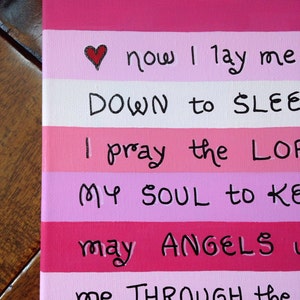 now I lay me
DOWN to SLEE
I pray the LOR
MY SOUL to KE
may ANGELS
me THROUGH the